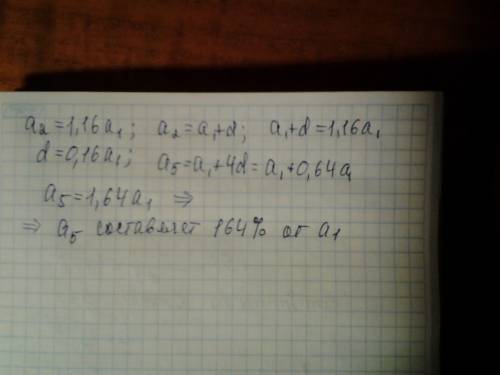 a₂=1,16a₁; a₂=a₁+d; a₁+d=1,16a₁
d=0,16a₁; a₅=a₁+4d=a₁+0,64a₁
a₅=1,64a₁ ⇒
⇒ a₅ составляет 164% от a₁